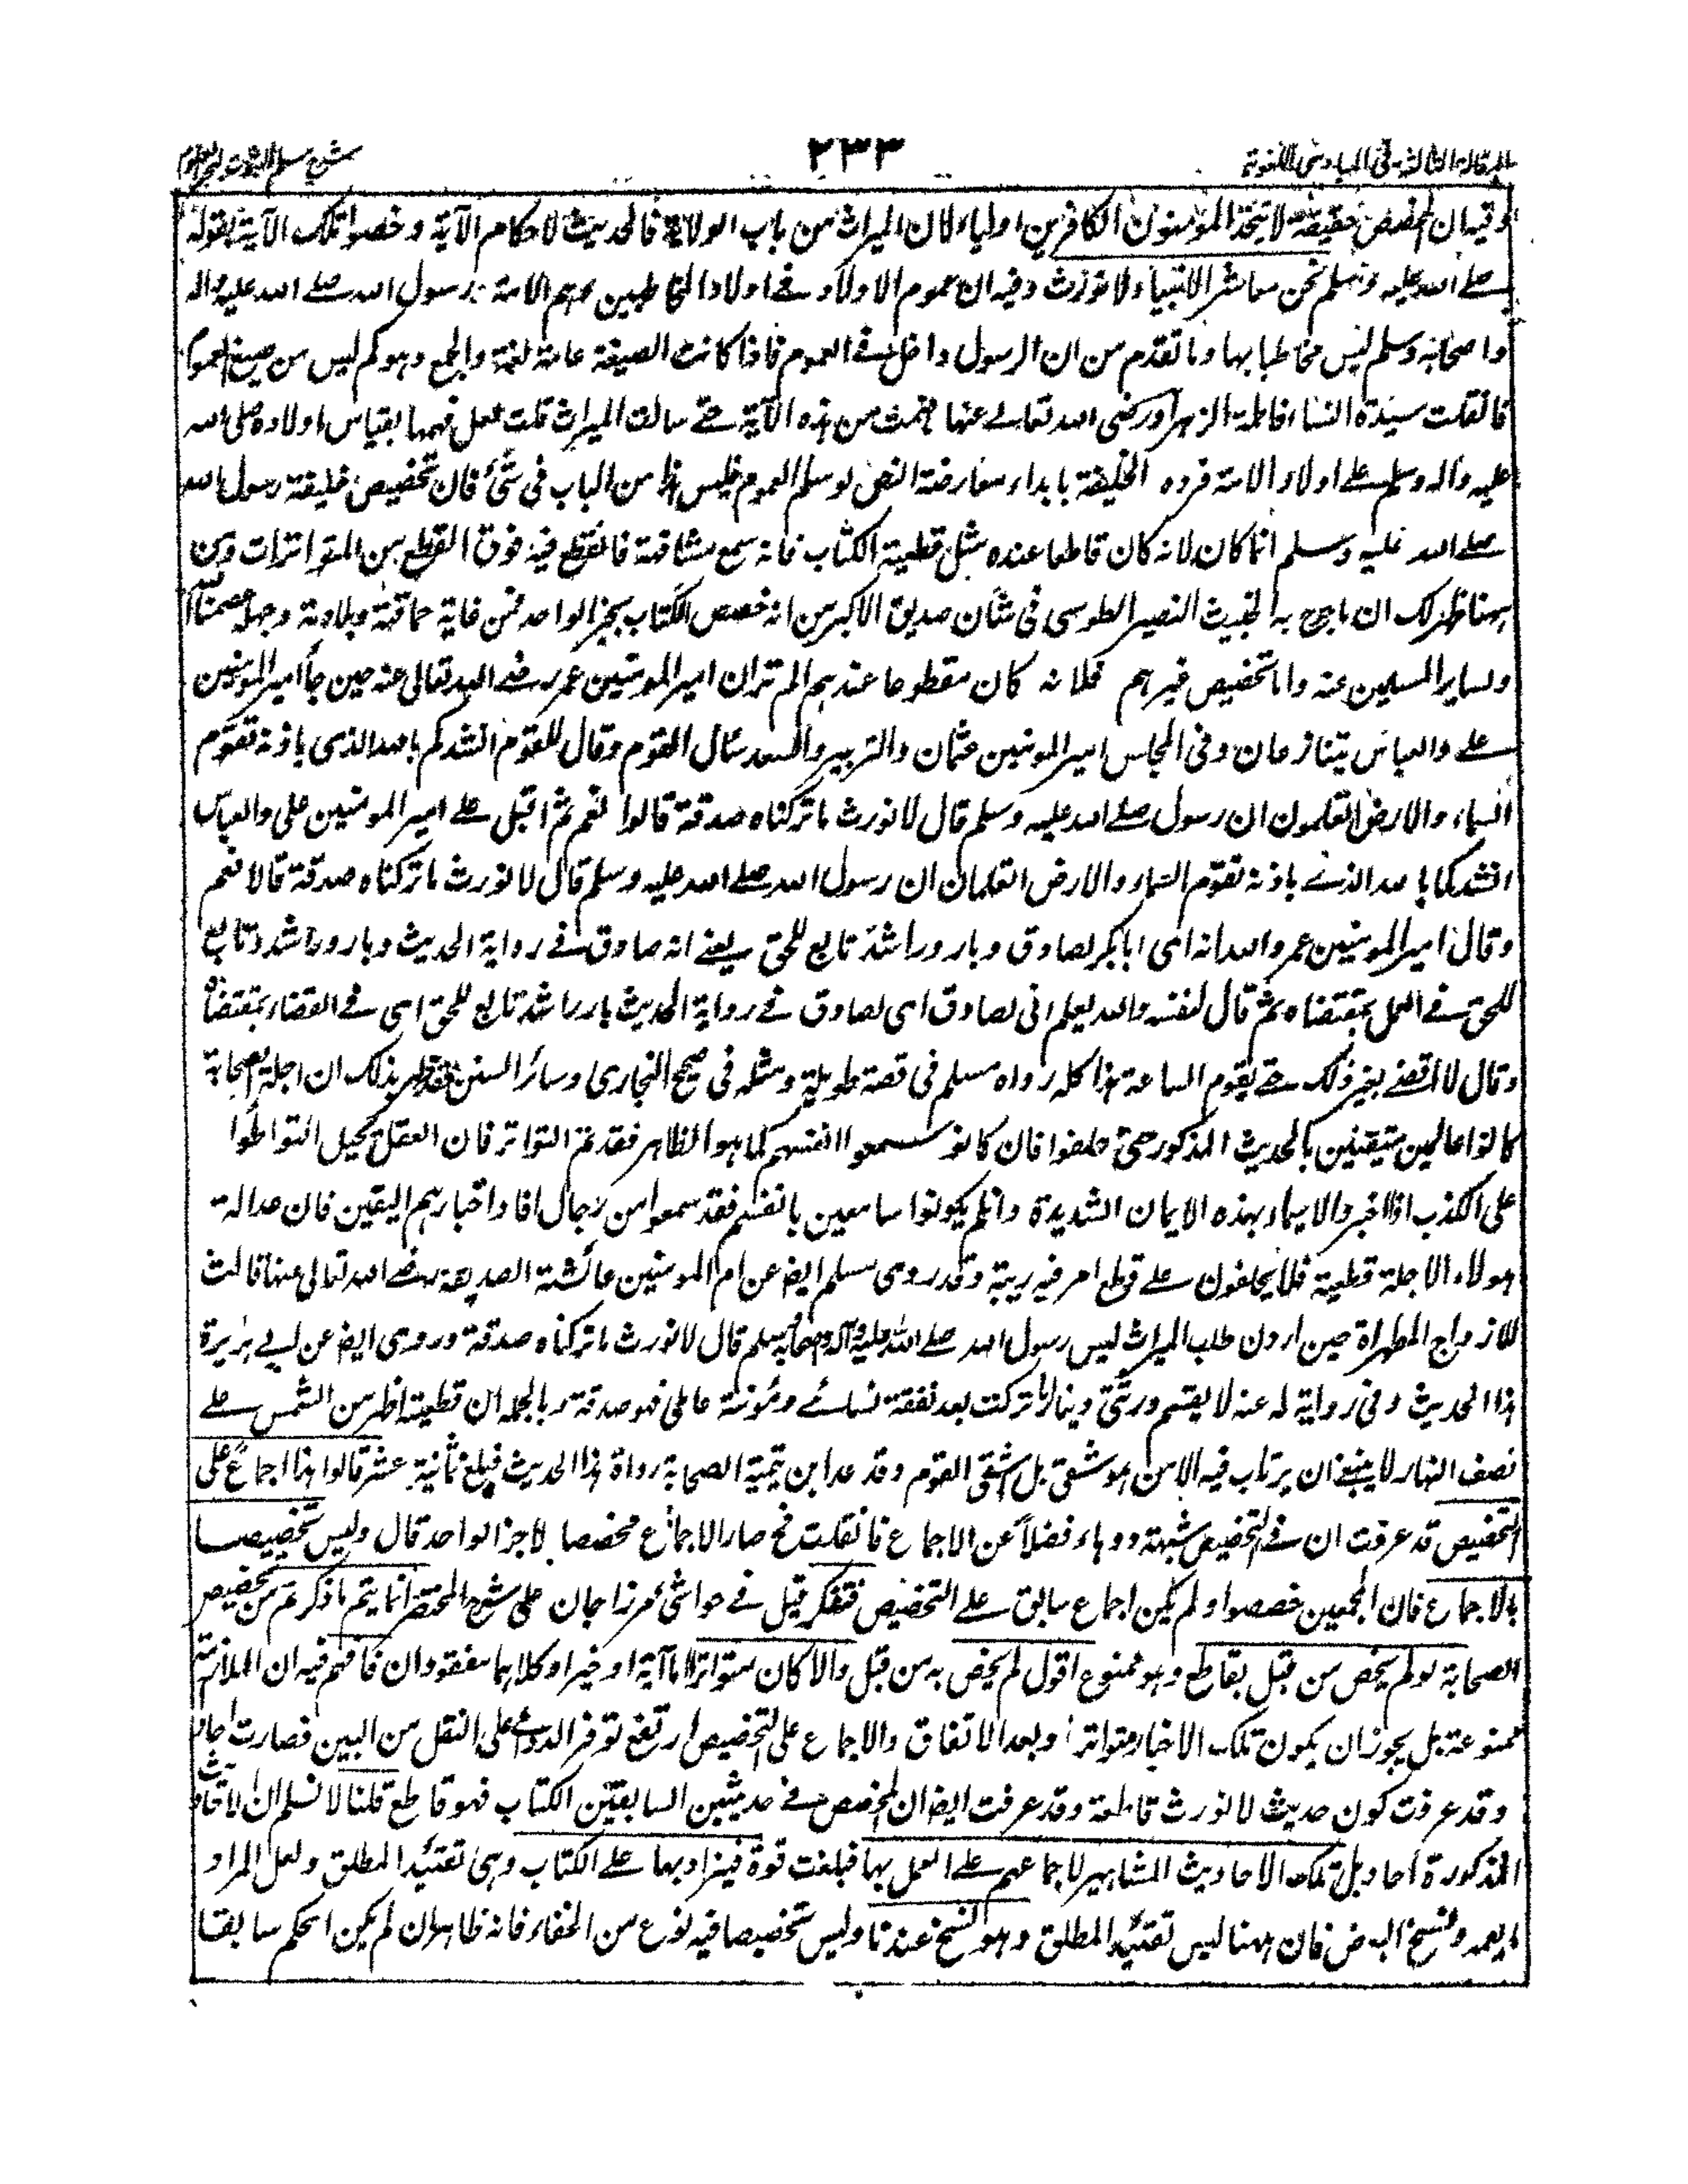 المقالة الثالثة فى المبادى اللغوية ٢٣٣ شرح مسلم الثبوت لبحر العلوم
وفيه ان المخصص حقيقة لا يتخذ المؤمنون الكافرين اولياء لان الميراث من باب الولاية فالحديث لاحكام الآية وخصوا تلك الآية بقوله
صلے الله عليه وسلم نحن معاشر الانبياء لا نورث وفيه ان عموم الاولاد فے اولاد المخاطبين وهم الامة ورسول الله صلے الله عليه واله
واصحابه وسلم ليس مخاطبا بها وما تقدم من ان الرسول داخل فے العموم فاذا كانت الصيغة عامة لغة والجمع وهو كم ليس من صيغ العموم
فان قلت سيدة النساء فاطمة الزهراء رضى الله تعالے عنها فهمت من هذه الآية حتے سالت الميراث قلت لعل فهمها بقياس اولاده صلى الله
عليه واله وسلم علے اولاد الامة فرده الخليفة بابداء معارضة النص لو سلم العموم فليس هذا من الباب فى شئ فان تخصيص خليفة رسول الله
صلے الله عليه وسلم انما كان لانه كان قاطعا عنده مثل قطعية الكتاب فانه سمع مشافهة فالقطع فيه فوق القطع من المتواترات ومن
ههنا ظهر لك ان ما حج به الخبيث النصير الطوسى فى شان صديق الاكبر من انه خصص الكتاب بخبر الواحد فمن غاية حماقة وبلادة وجهله عصمنا الله
ولسائر المسلمين عنه واما تخصيص غيرهم فلانه كان مقطوعا عندهم الم تر ان امير المومنين عمر رضے الله تعالى عنه حين جاء امير المومنين
علے والعباس يتنازعان وفى المجلس امير المومنين عثمان والزبير والسعد سئال القوم وقال للقوم انشدكم بالله الذى باذنه تقوم
السماء والارض اتعلمون ان رسول صلے الله عليه وسلم قال لا نورث ما تركناه صدقة قالوا نعم ثم اقبل علے امير المومنين على والعباس
انشدكما بالله الذے باذنه تقوم السماء والارض اتعلمان ان رسول الله صلے الله عليه وسلم قال لا نورث ما تركناه صدقة قالا نعم
وقال امير المومنين عمر والله انه اى ابا بكر لصادق وبار وراشد تابع للحق يعنے انه صادق فے رواية الحديث وبار وراشد وتابع
للحق فے العمل بمقتضاه ثم قال لنفسه والله يعلم انى لصادق اى لصادق فے رواية الحديث بار راشد تابع للحق اى فے القضاء بمقتضاه
وقال لا اقضے بغير ذلك حتے يقوم الساعة هذا كله رواه مسلم فى قصة طويلة ومثله فى صحيح البخارى وسائر السنن فظهر بذلك ان اجلة الصحابة
كانوا عالمين متيقنين بالحديث المذكور حتى حلفوا فان كانوا سمعوا انفسهم كما هو الظاهر فقد تم التواتر فان العقل يحيل التواطؤا
على الكذب اذا اخبروا لا سيما بهذه الايمان الشديدة وان لم يكونوا سامعين بانفسهم فقد سمعوا من رجال افاد اخبارهم اليقين فان عدالة
هولاء الاجلة قطعية فلا يحلفون علے قطع امر فيه ريبة وقد روى مسلم ايضا عن ام المومنين عائشة الصديقة رضے الله تعالى عنها قالت
للازواج المطهراة حين اردن طلب الميراث ليس رسول الله صلے الله عليه وآله واصحابه وسلم قال لا نورث ما تركناه صدقة وروى ايضا عن ابے هريرة
هذا الحديث وفى رواية له عنه لا يقسم ورثتى دينارا ما تركت بعد نفقة نسائے ومؤنة عاملى فهو صدقة وبالجملة ان قطعيته اظهر من الشمس علے
نصف النهار لا ينبغے ان يرتاب فيه الا من هو شقى بل اشقى القوم وقد عد ابن تيمية الصحابة رواة هذا الحديث فبلغ ثمانية عشر قالوا هذا اجماع على
التخصيص قد عرفت ان فے التخصيص شبهة ووهاء فضلا عن الاجماع فان قلت فح صار الاجماع مخصصا لا خبر الواحد قال وليس تخصيصا
بالاجماع فان المجمعين خصصوا ولم يكن اجماع سابق علے التخصيص فتفكر قيل فے حواشى مرزا جان على شرح المختصر انما يتم ما ذكرتم من تخصيص
الصحابة لو لم يخص من قبل بقاطع وهو ممنوع اقول لم يخص به من قبل والا كان متواترا اما آية او خبرا وكلاهما مفقودان فافهم فيه ان الملازمة
ممنوعة بل يجوز ان يكون تلك الاخبار متواترا وبعد الاتفاق والاجماع على التخصيص ارتفع توفر الدواعے على النقل من البين فصارت احادا
وقد عرفت كون حديث لا نورث قاطعة وقد عرفت ايضا ان المخصص فے حديثين السابقين الكتاب فهو قاطع قلنا لا نسلم ان الاحاديث
المذكورة احاد بل تلك الاحاديث المشاهير لاجماعهم علے العمل بها فبلغت قوة فيزاد بها علے الكتاب وهى تقتيد المطلق ولعل المراد
ما يعمه ونسخ البعض فان ههنا ليس تقتيد المطلق وهو النسخ عندنا وليس تخصيصا فيه نوع من الخفاء فانه ظاهر ان لم يكن الحكم سابقا